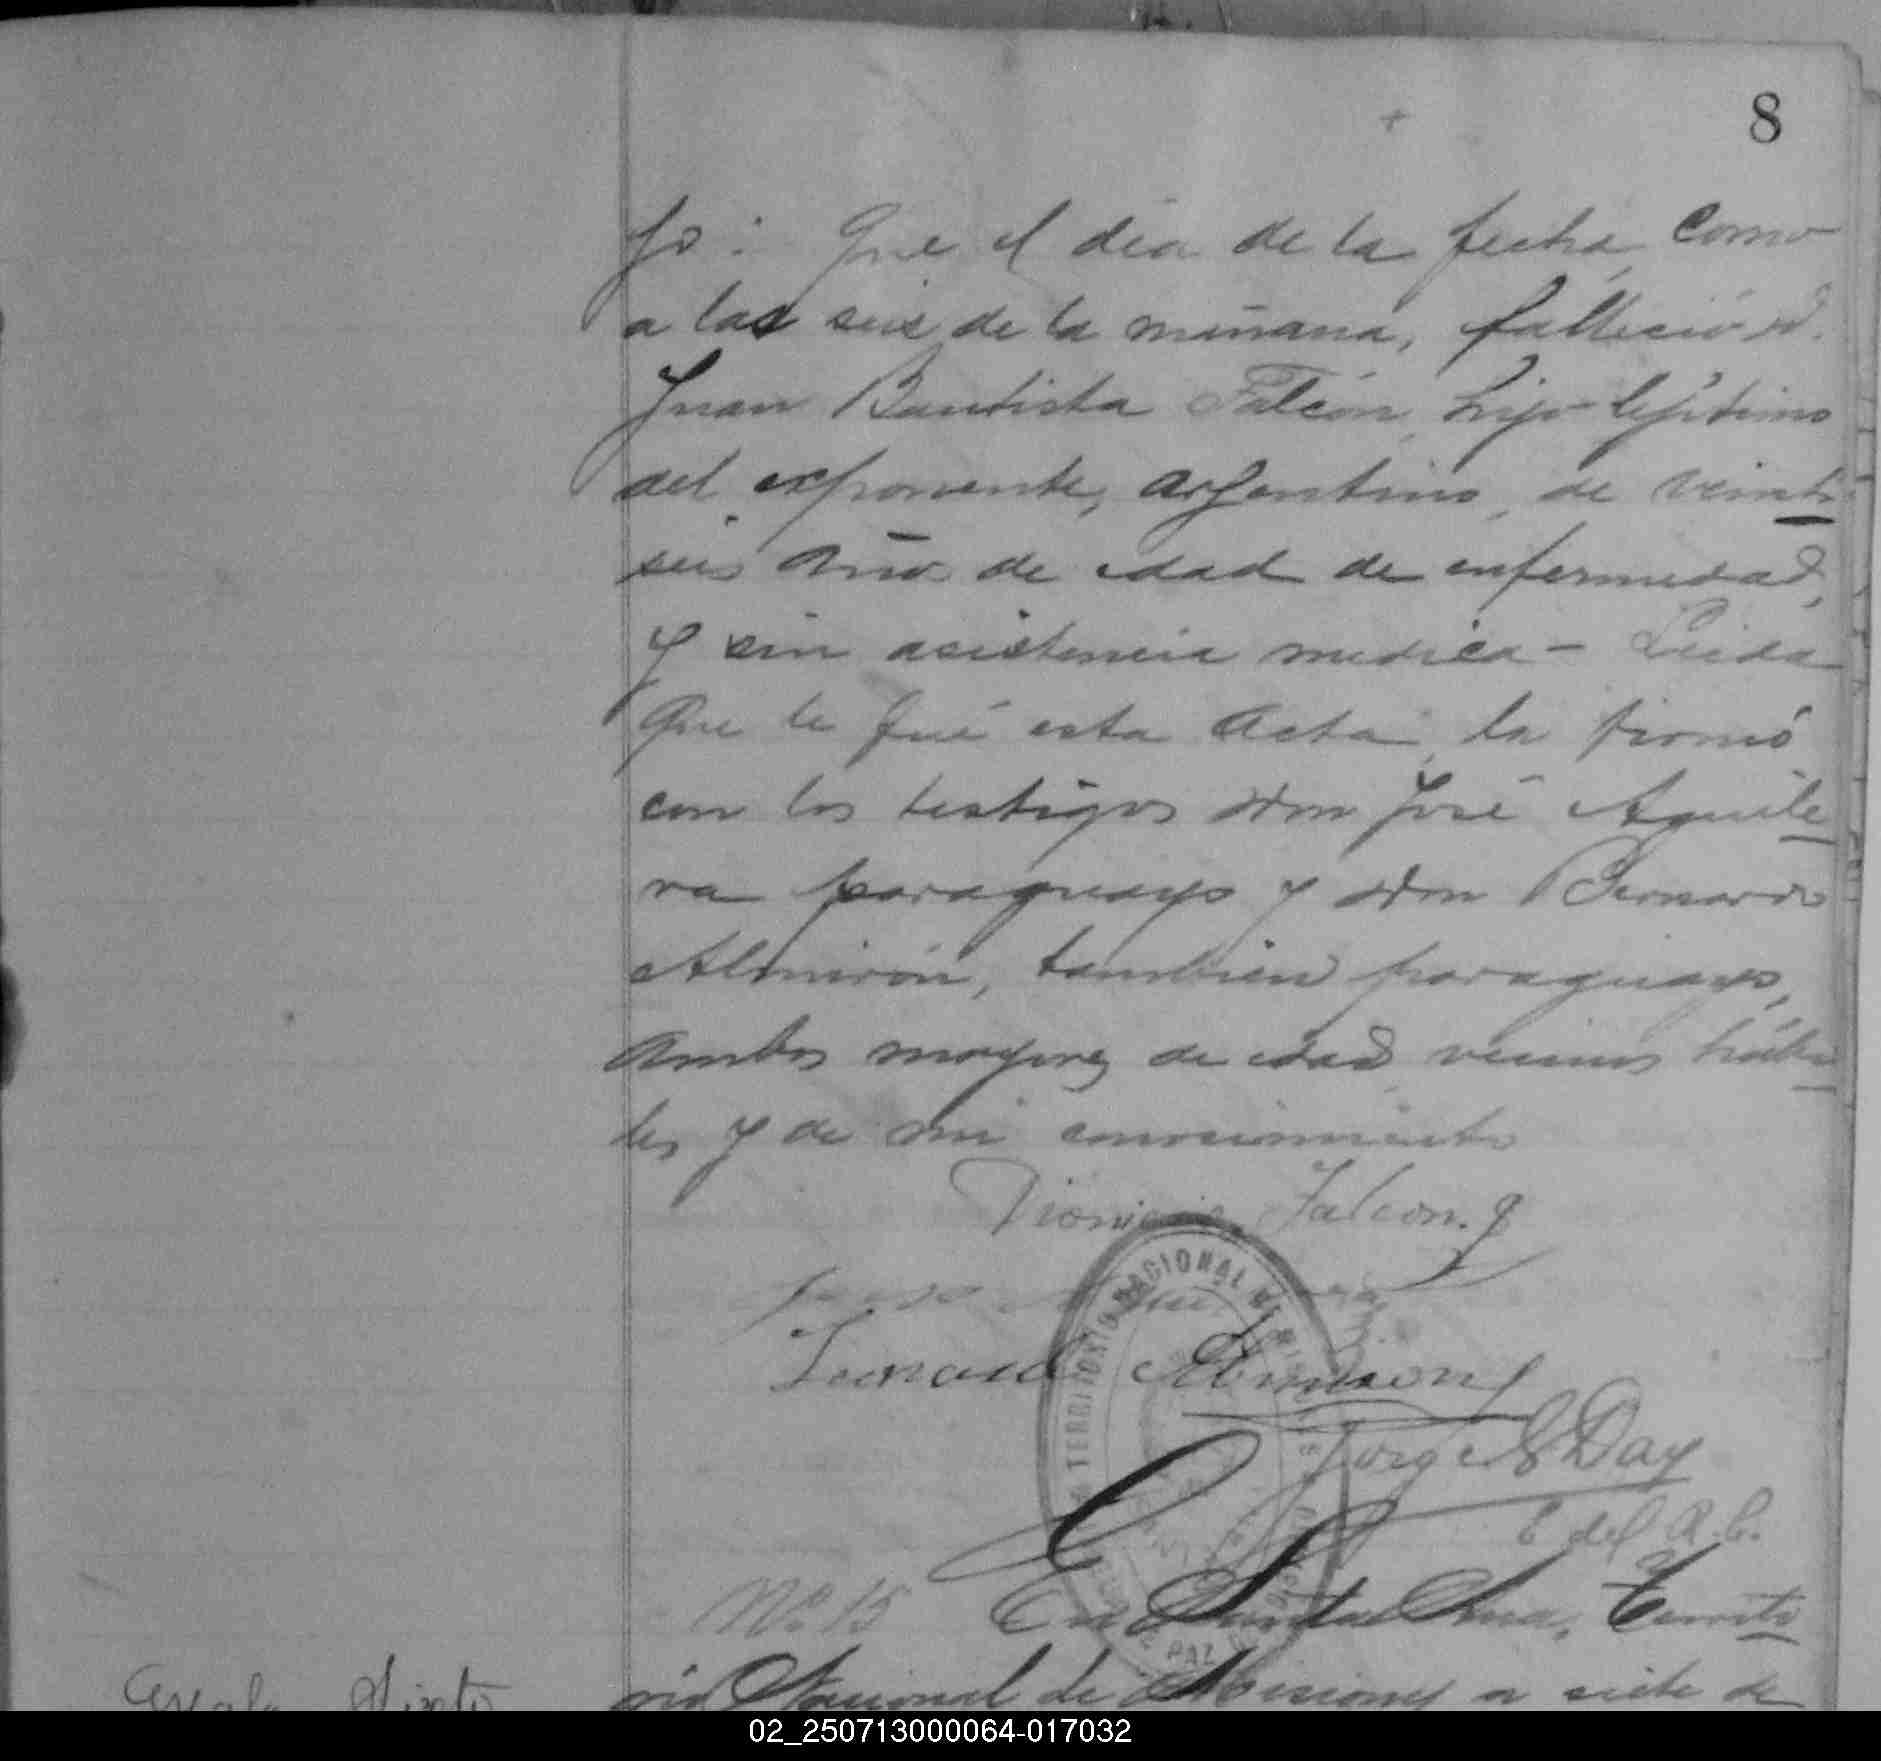 8
jo: Que el dia de la fecha, como
a las seis de la mañana, falleció d.
Juan Bautista Falcón, hijo lejítimo
del exponente, argentino, de veinti
seis años de edad de enfermedad,
y sin asistencia medica – Leida
que le fué esta acta, la firmó
con los testigos don José Aguile
ra paraguayo y don Bernardo
Almirón, tambien paraguayo,
ambos mayores de edad, vecinos hábi
les y de mi conocimiento
Dionicio Falcon.
TERRITORIO NACIONAL DE
Almiron
Jorge Day
E del R.C.
DE PAZ
Nº 15 En Santa Ana, Territo
rio Nacional de Misiones a siete de
02_250713000064-017032